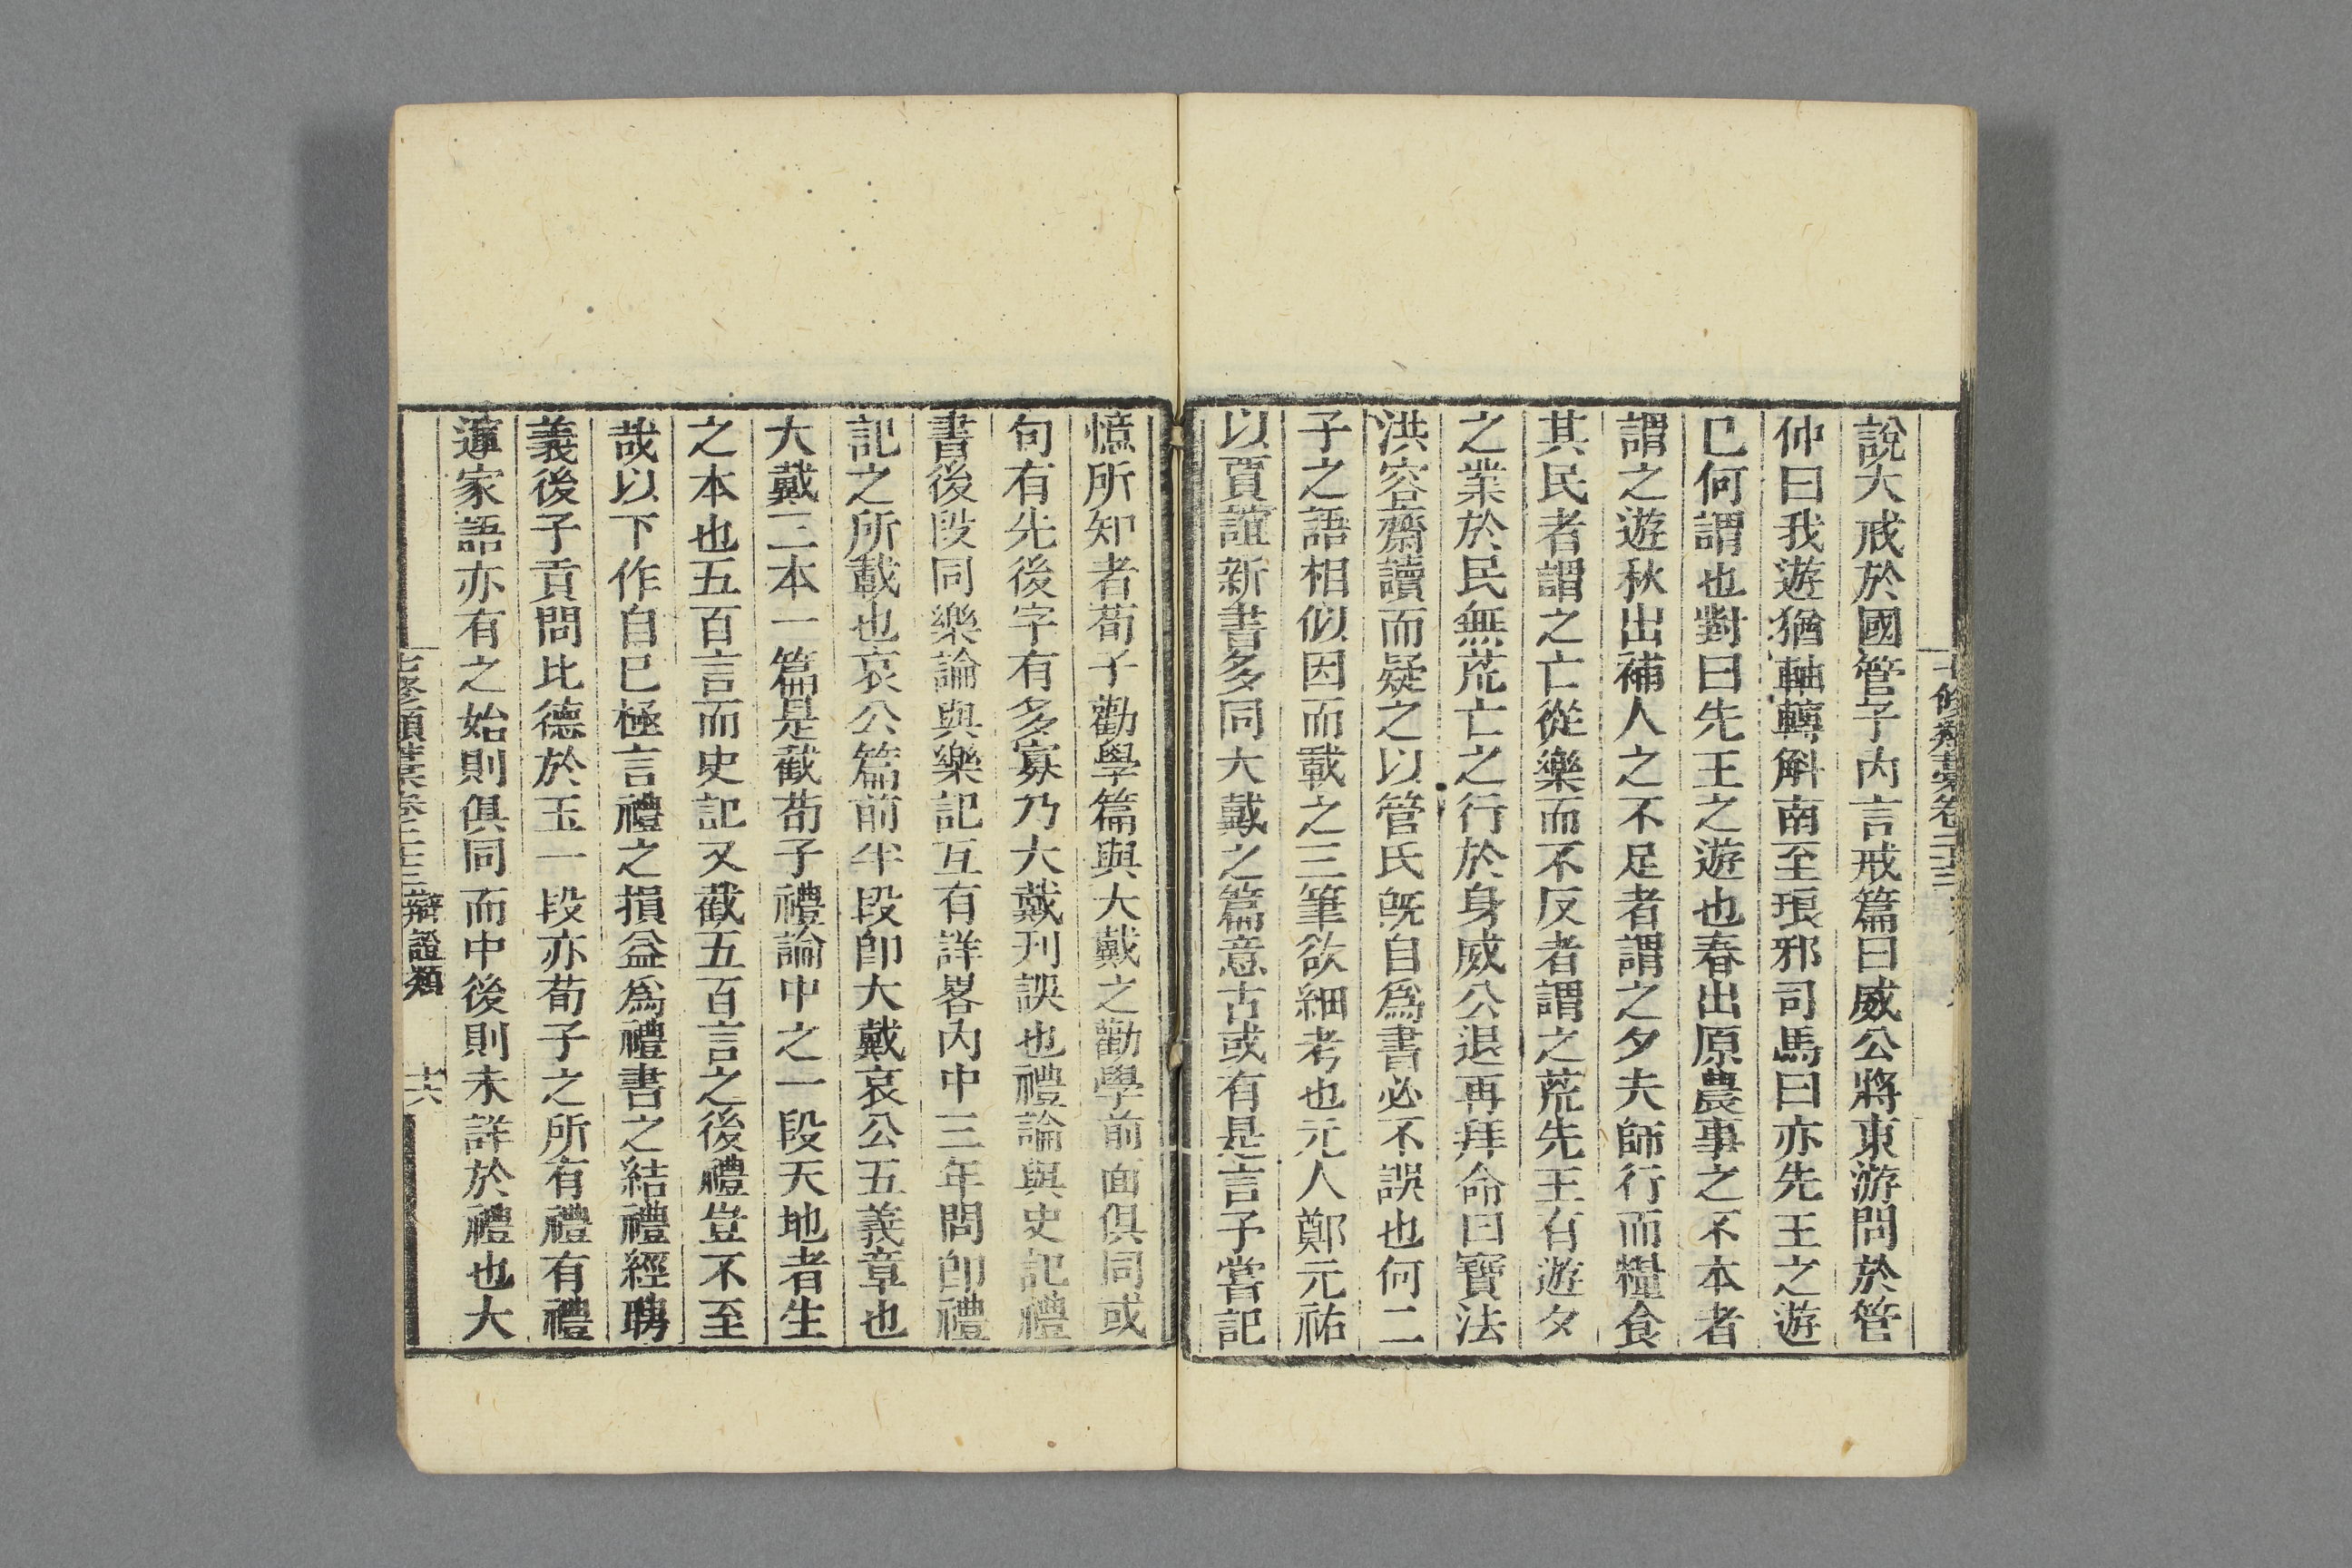 七修類藁卷二十三
說大戒於國管子內言戒篇曰威公將東游問於管
仲曰我遊猶軸轉斛南至琅邪司馬曰亦先王之遊
已何謂也對曰先王之遊也春出原農事之不本者
謂之遊秋出補人之不足者謂之夕夫師行而糧食
其民者謂之亡從樂而不反者謂之荒先王有遊夕
之業於民無荒亡之行於身威公退再拜命曰寶法
洪容齋讀而疑之以管氏既自爲書必不誤也何二
子之語相似因而載之三筆欲細考也元人鄭元祐
以賈誼新書多同大戴之篇意古或有是言子嘗記
憶所知者荀子勸學篇與大戴之勸學前面俱同或
句有先後字有多寡乃大戴刋誤也禮論與史記禮
書後段同樂論與樂記互有詳畧內中三年問卽禮
記之所載也哀公篇前半段卽大戴哀公五義章也
大戴三本一篇是截荀子禮論中之一段天地者生
之本也五百言而史記又截五百言之後禮豈不至
哉以下作自已極言禮之損益爲禮書之結禮經聘
義後子貢問比德於玉一段亦荀子之所有禮有禮
遽家語亦有之始則俱同而中後則未詳於禮也大
七修類藁卷二十三 辯證類 十六